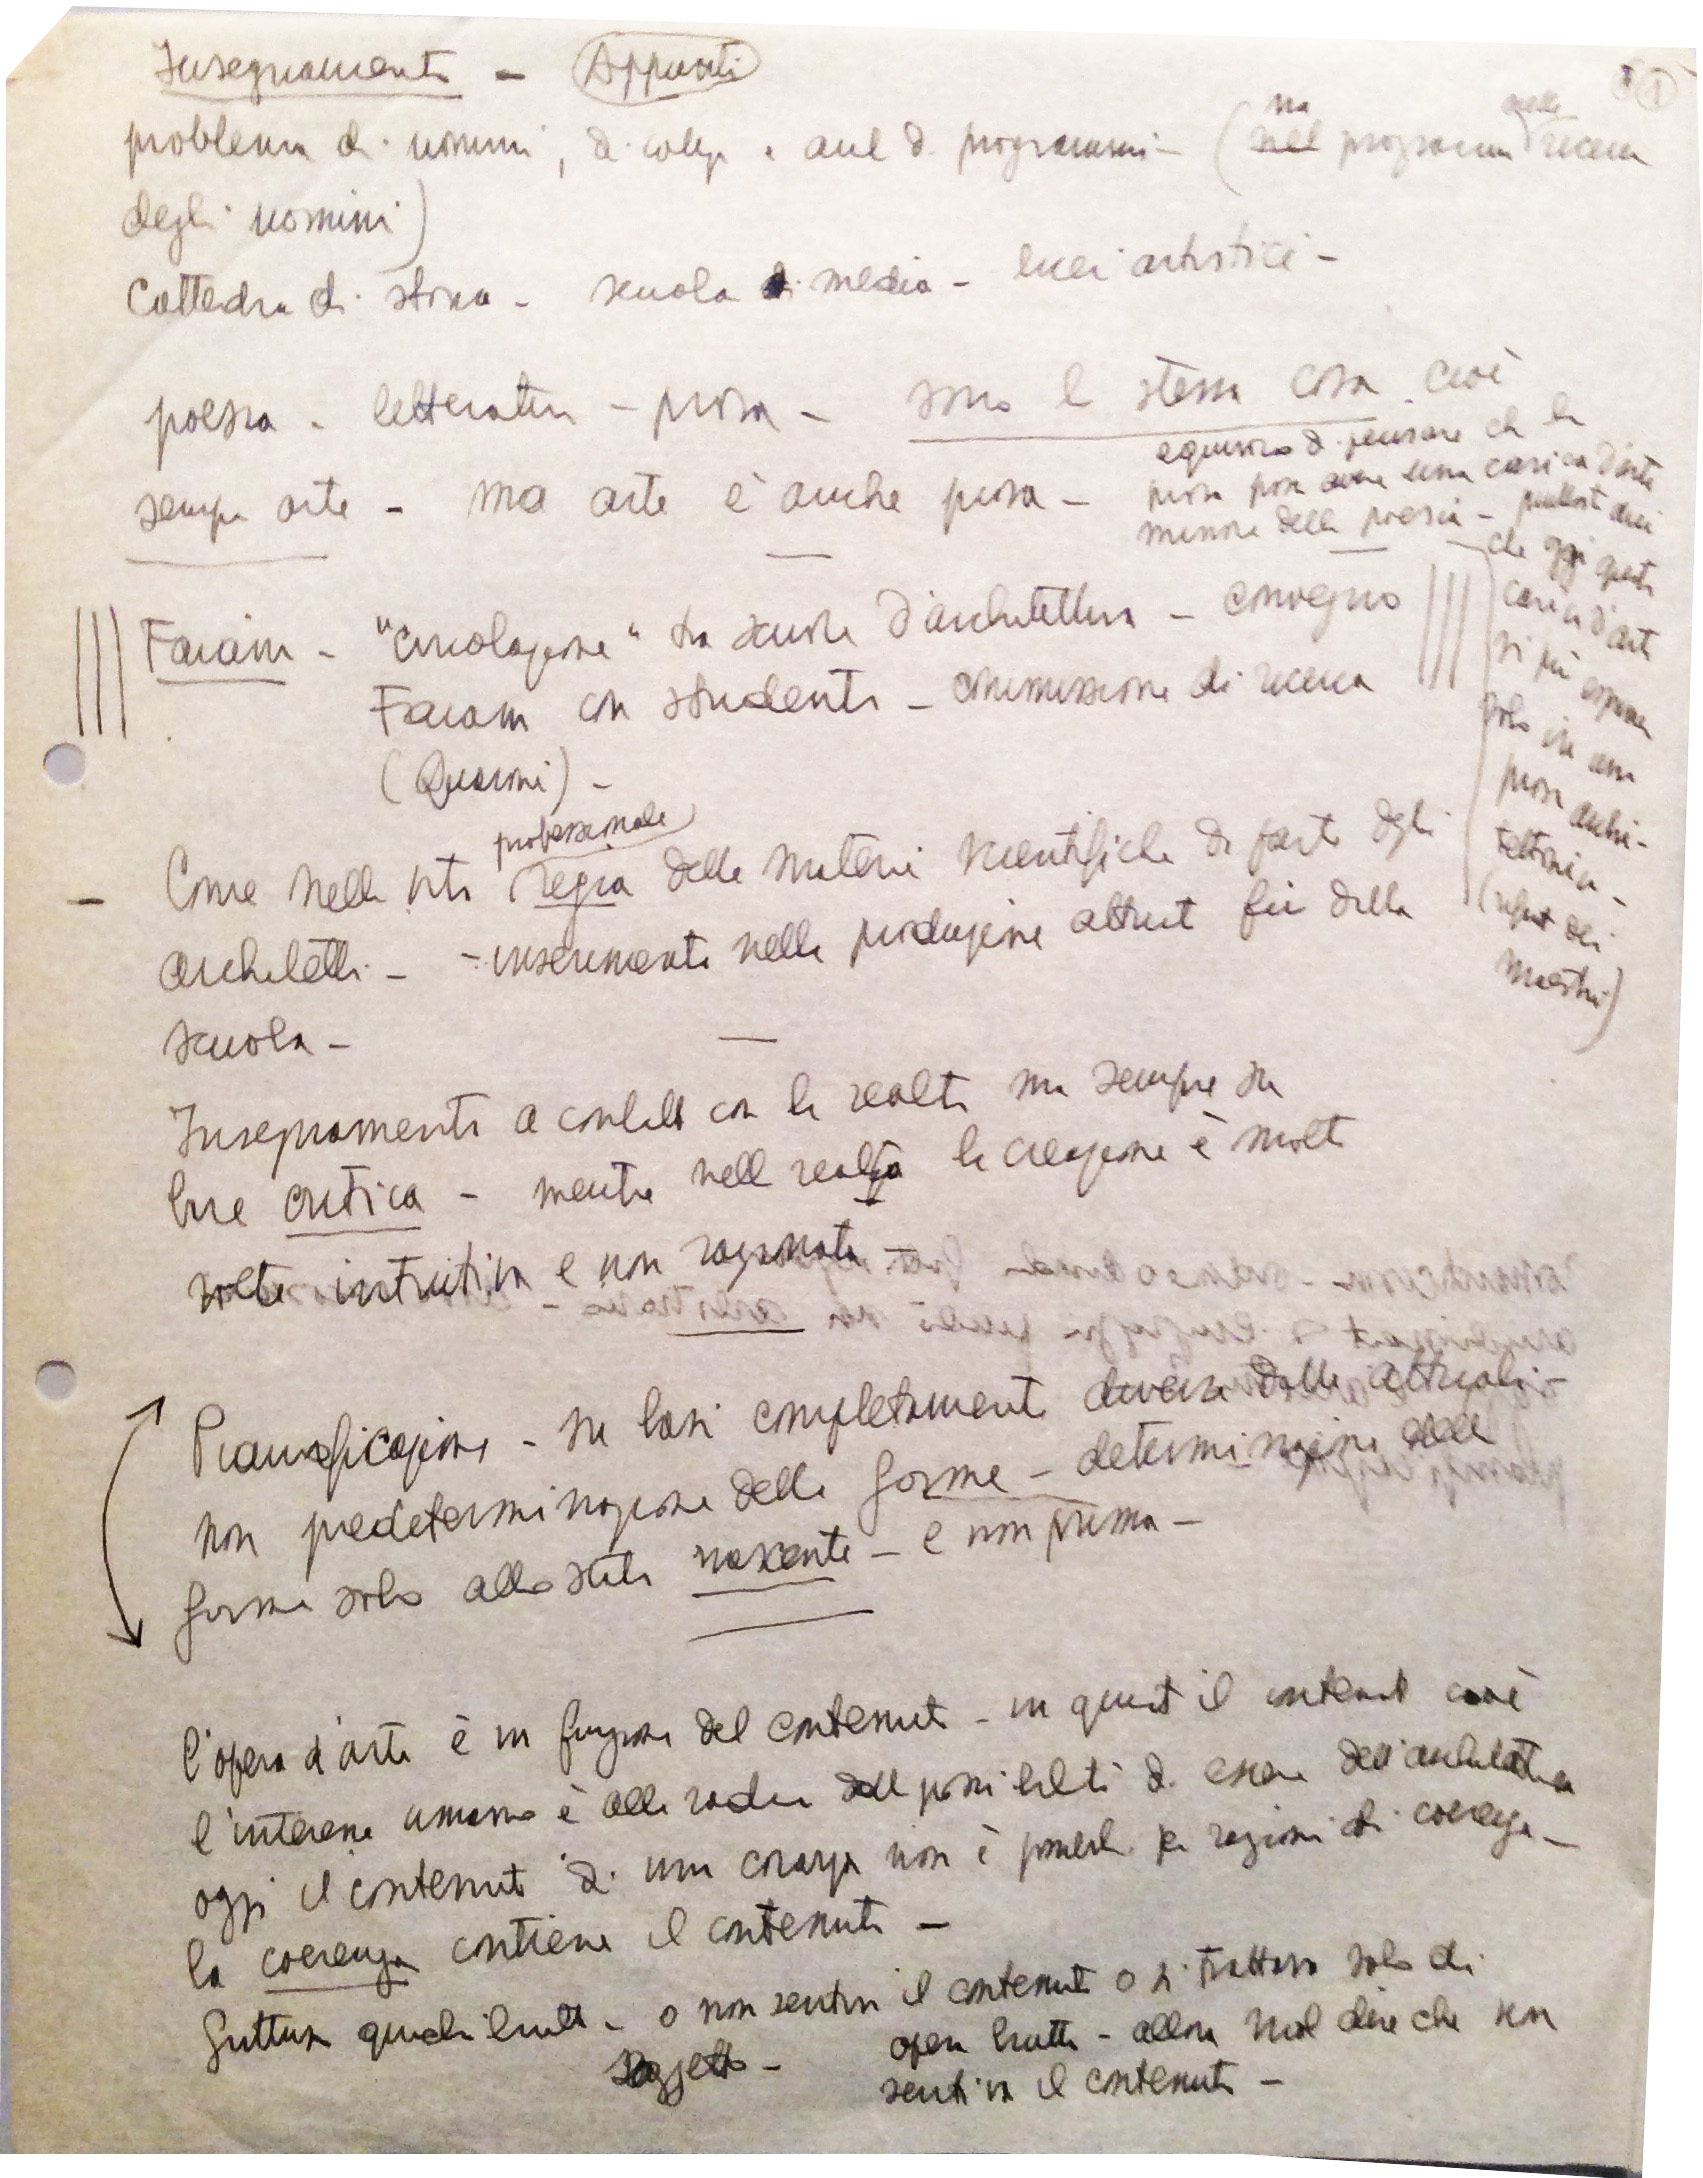 Insegnamento - Appunti
1
problema di uomini, di colleghi e aule di programmi - (ma nel programma quello ricerca
degli uomini)
Cattedra di storia - scuola di media - licei artistici -
poesia - letteratura - prosa - sono la stessa cosa cioè
sempre arte - ma arte è anche prosa -
equivoco di pensare che la
prosa possa avere una carica d'arte
minore della poesia - piuttosto direi
che oggi questa
carica d'arte
si può esprimere
solo in una
prosa archi-
tettonica -
dei
maestri)
Faciam - "circolazione" tra scuole d'architettura - convegno
Faciam con studenti - commissione di ricerca
(Quaroni) -
professionale
- Come nella vita regia delle materie scientifiche da parte degli
architetti - inserimento nella produzione attuale fin dalla
scuola -
Insegnamento a contatto con la realtà ma sempre su
base critica - mentre nella realtà la creazione è molte
volte intuitiva e non ragionata -
Pianificazione - su basi completamente diverse dalle attuali -
non predeterminazione delle forme - determinazione delle
forme solo allo stato nascente - e non prima -
l'opera d'arte è in funzione del contenuto - in quanto il contenuto cioè
l'interesse umano è alla radice delle possibilità di essere dell'architettura
oggi il contenuto di una non è possibile per ragioni di coerenza -
la coerenza contiene il contenuto -
Guttuso quadri brutti - o non sentiva il contenuto o si trattava solo di
soggetto -
opera brutta - allora vuol dire che non
sentiva il contenuto -